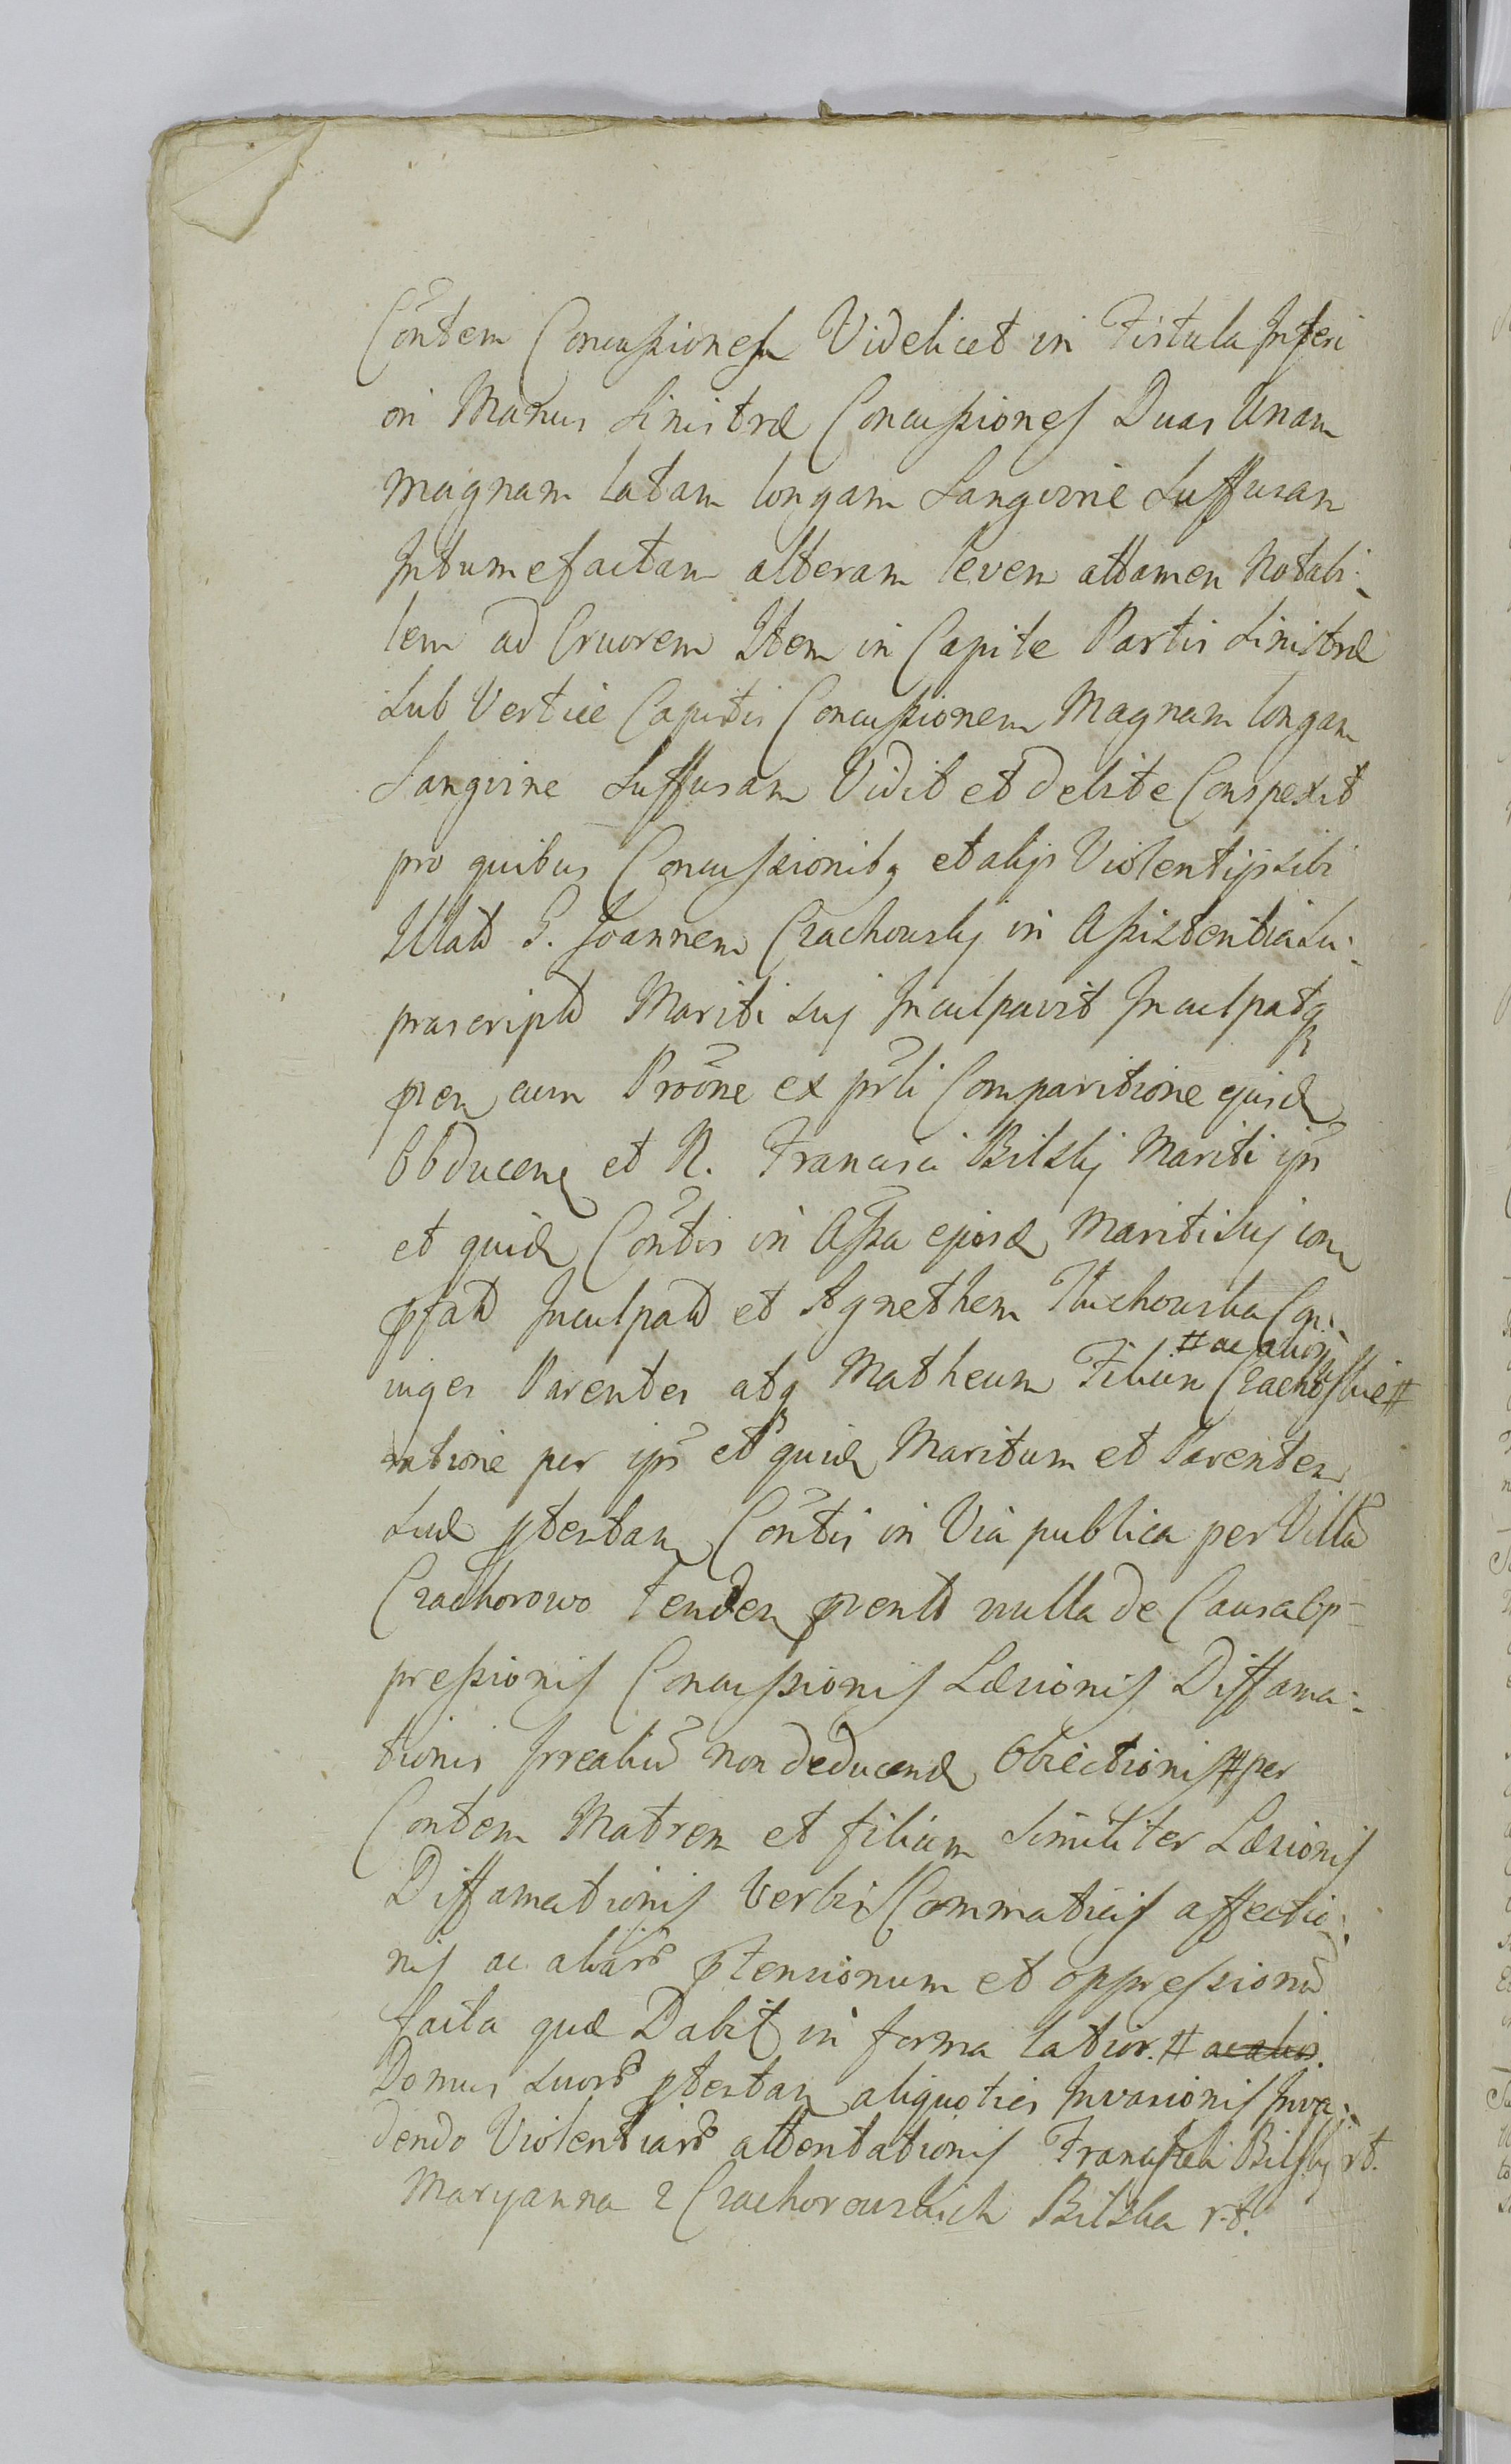 Con̄tem Concussionem Videlicet in Fistula Inferi
ori Manus Sinistræ Concussiones Duas Unam
magnam latam longam Sangvine Suffusam
Intumefactam alteram levem attamen Notabi-
lem ad Cruorem Item in Capite Partis Sinistræ
Sub Vertice Capitis Concussionem Magnam longam
Sangvine Suffusam Vidit et debite Conspexit
pro quibus Concussionibq et alijs Violentijs sibi
Illatis G. Joannem Czachowskj in Assistentia Su-
prascripta Mariti suj Inculpavit Inculpatq
cum Pro͞one ex Comparitione ejusd
Obducen et N. Francisci Bilskj Mariti ips
et quid Con̄tis in Assa ejusd Mariti suj con
pfatu Inculpatu et Agnethem Con-
iuges Parentes atq Matheum Filium Czachowskie #
# ac alior
ratione per ips et quid Maritum et Parentem
suæ ptestam Con̄tis in Via publica per Villa
Czachorowo tenden pventu nulla de Causa Op-
pressionis Concussionis Læsionis Diffama-
tionis non deducend Obiectionis # per
Contem Matrem et filium Similiter Læsionis
Diffamationis Verbis Commaticis affectio-
nis ac aliar ptensionum et oppressionu
facta quæ Dabit in forma latior. # ac alior.
Domus suor ptestan aliquoties Invasionis Inva-
dendo Violentiar attentationis Francisci Bilskj rt.
Maryanna z Czachorowskich Bilska r.t.